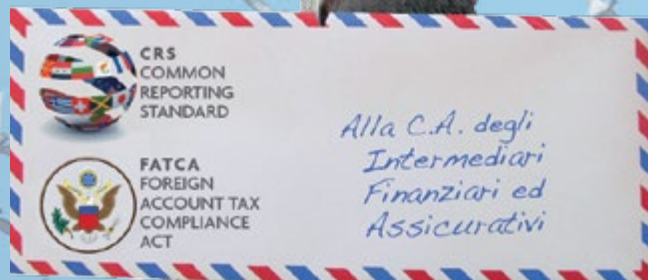 CRS
COMMON
REPORTING
STANDARD
FATCA
FOREIGN
ACCOUNT TAX
COMPLIANCE
ACT
Alla C.A. degli
Intermediari
Finanziari ed
Assicurativi